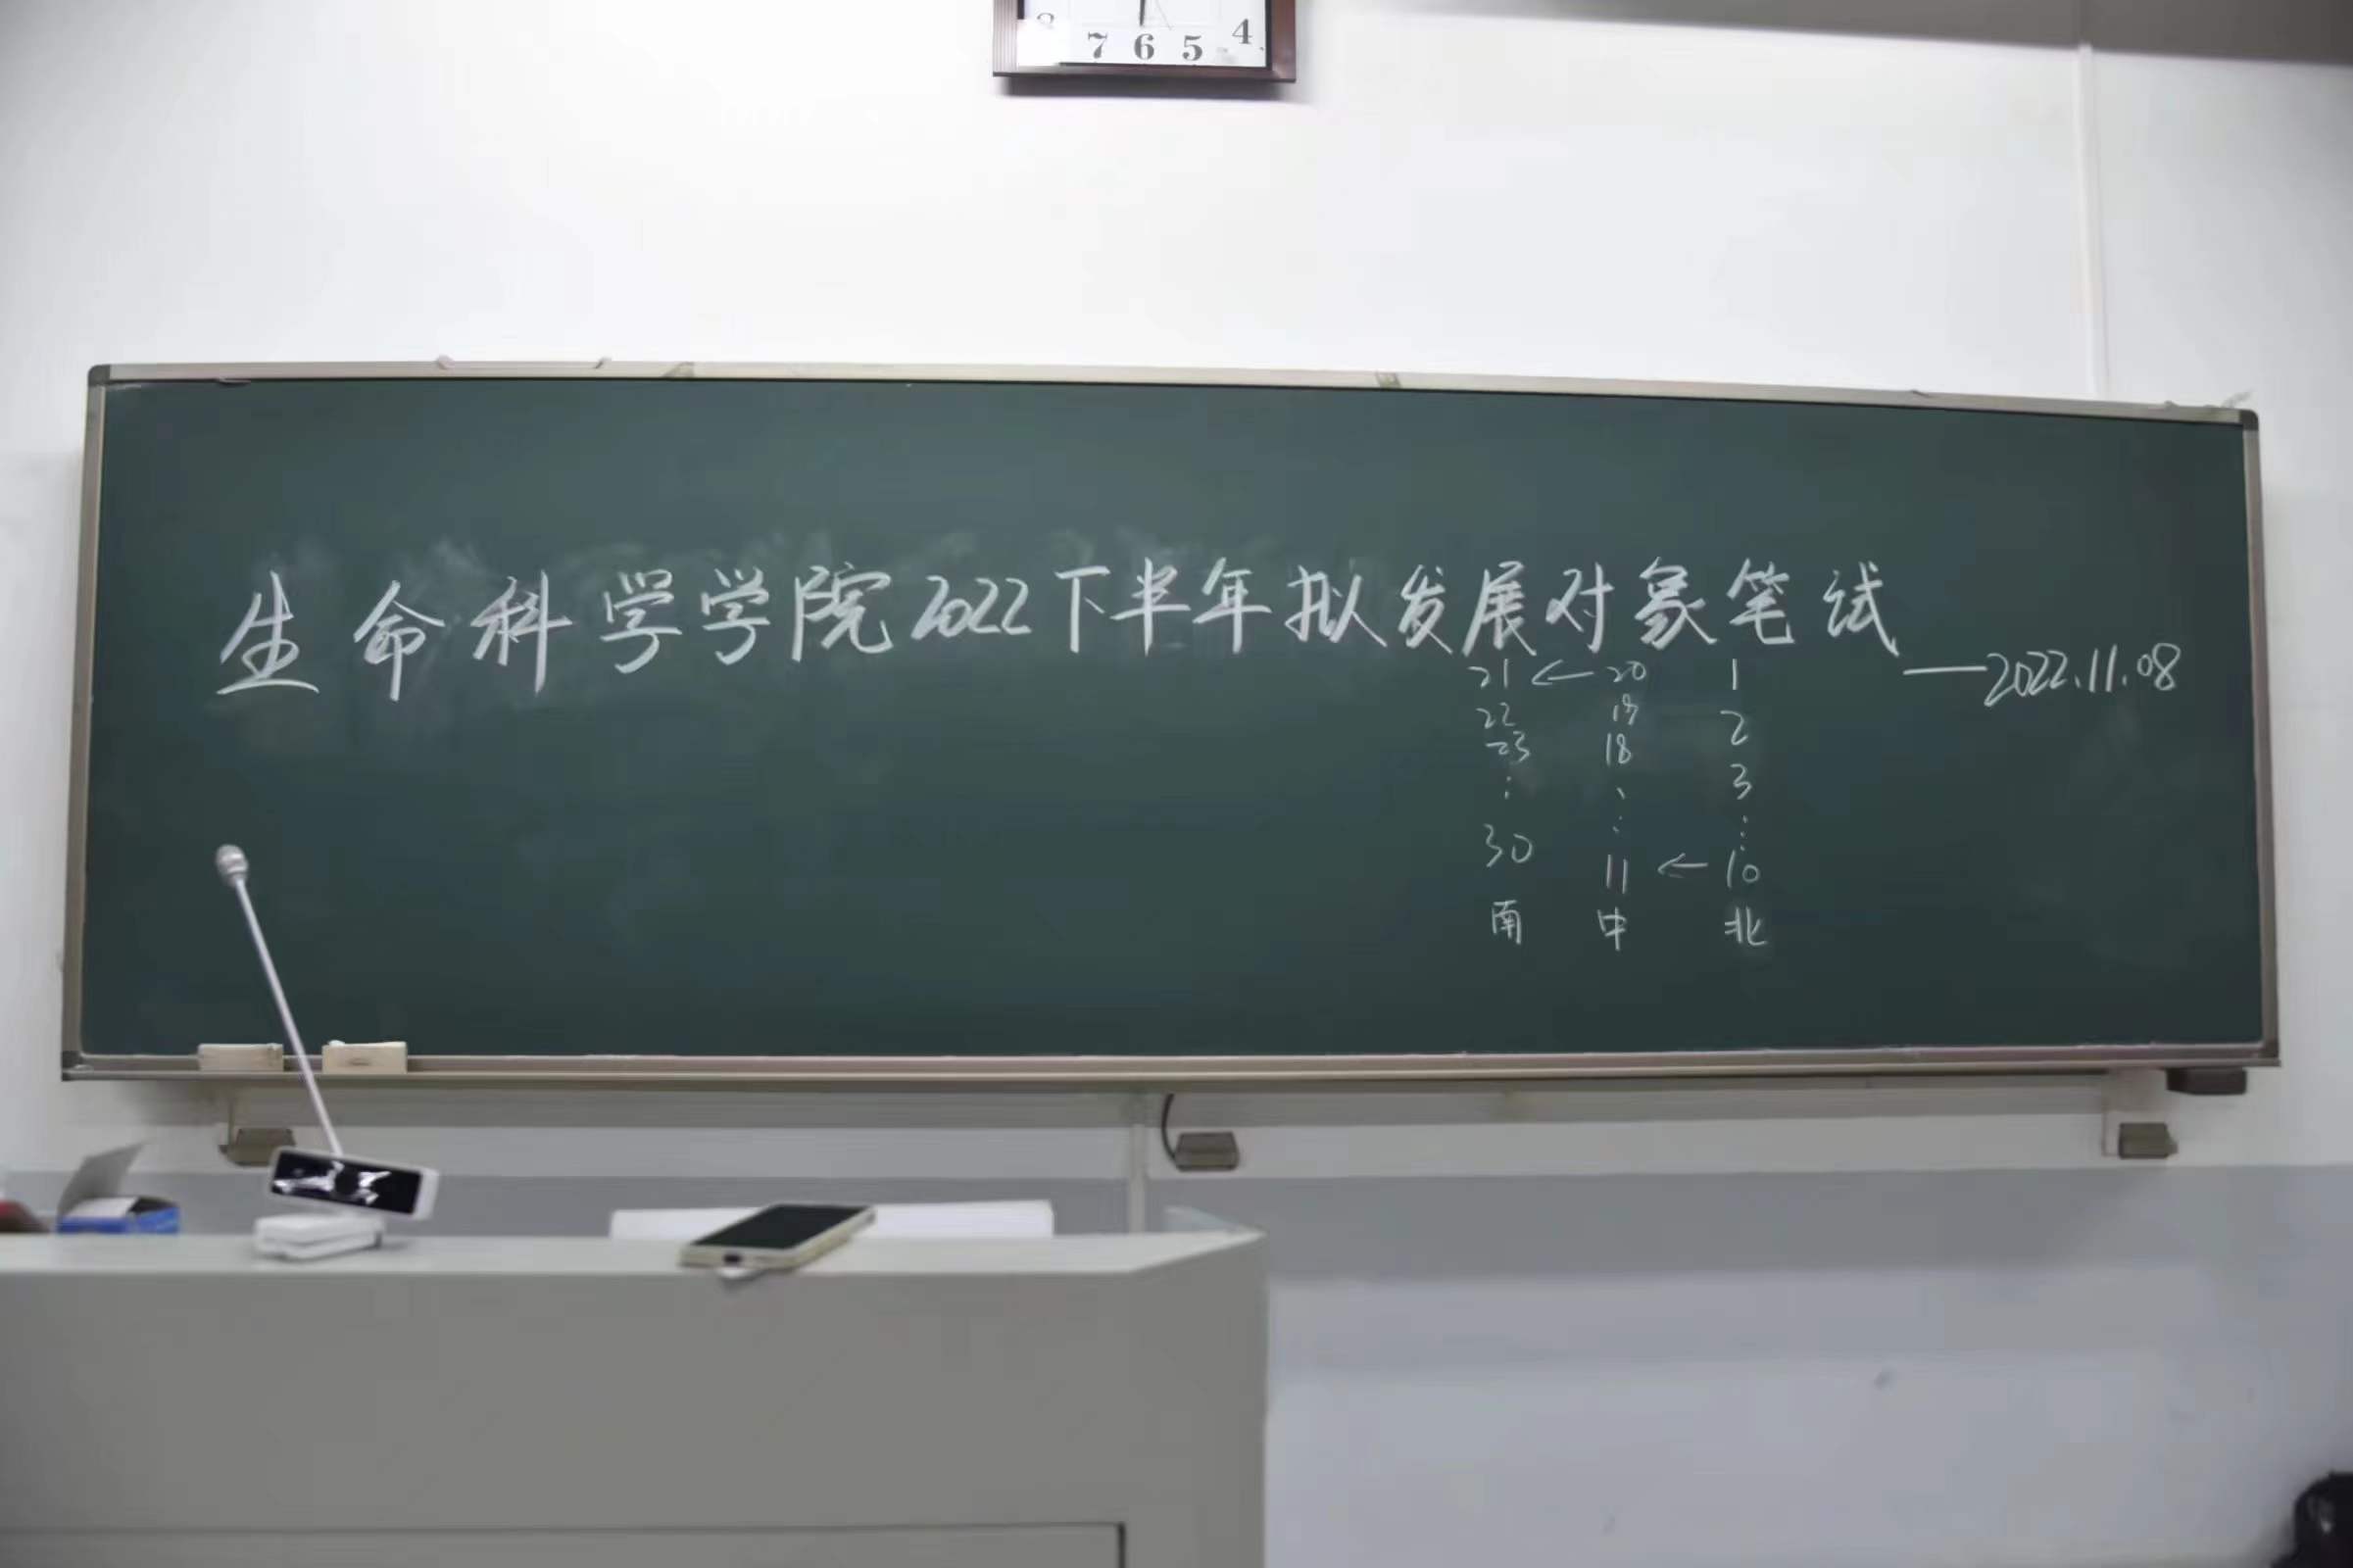 8 7 6 5 4
生命科学学院2022下半年拟发展对象笔试
—2022.11.08
21 ← 20 1
22 19 2
23 18 3
⋮ ⋮ ⋮
30 11 ← 10
南 中 北